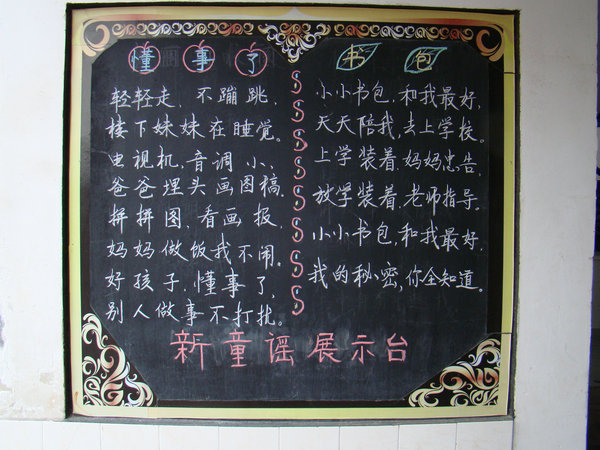 懂事了
轻轻走，不蹦跳，
楼下妹妹在睡觉。
电视机，音调小，
爸爸埋头画图稿。
拼拼图，看画报，
妈妈做饭我不闹。
好孩子，懂事了，
别人做事不打扰。
书包
小小书包，和我最好，
天天陪我，去上学校。
上学装着，妈妈忠告，
放学装着，老师指导。
小小书包，和我最好，
我的秘密，你全知道。
新童谣展示台